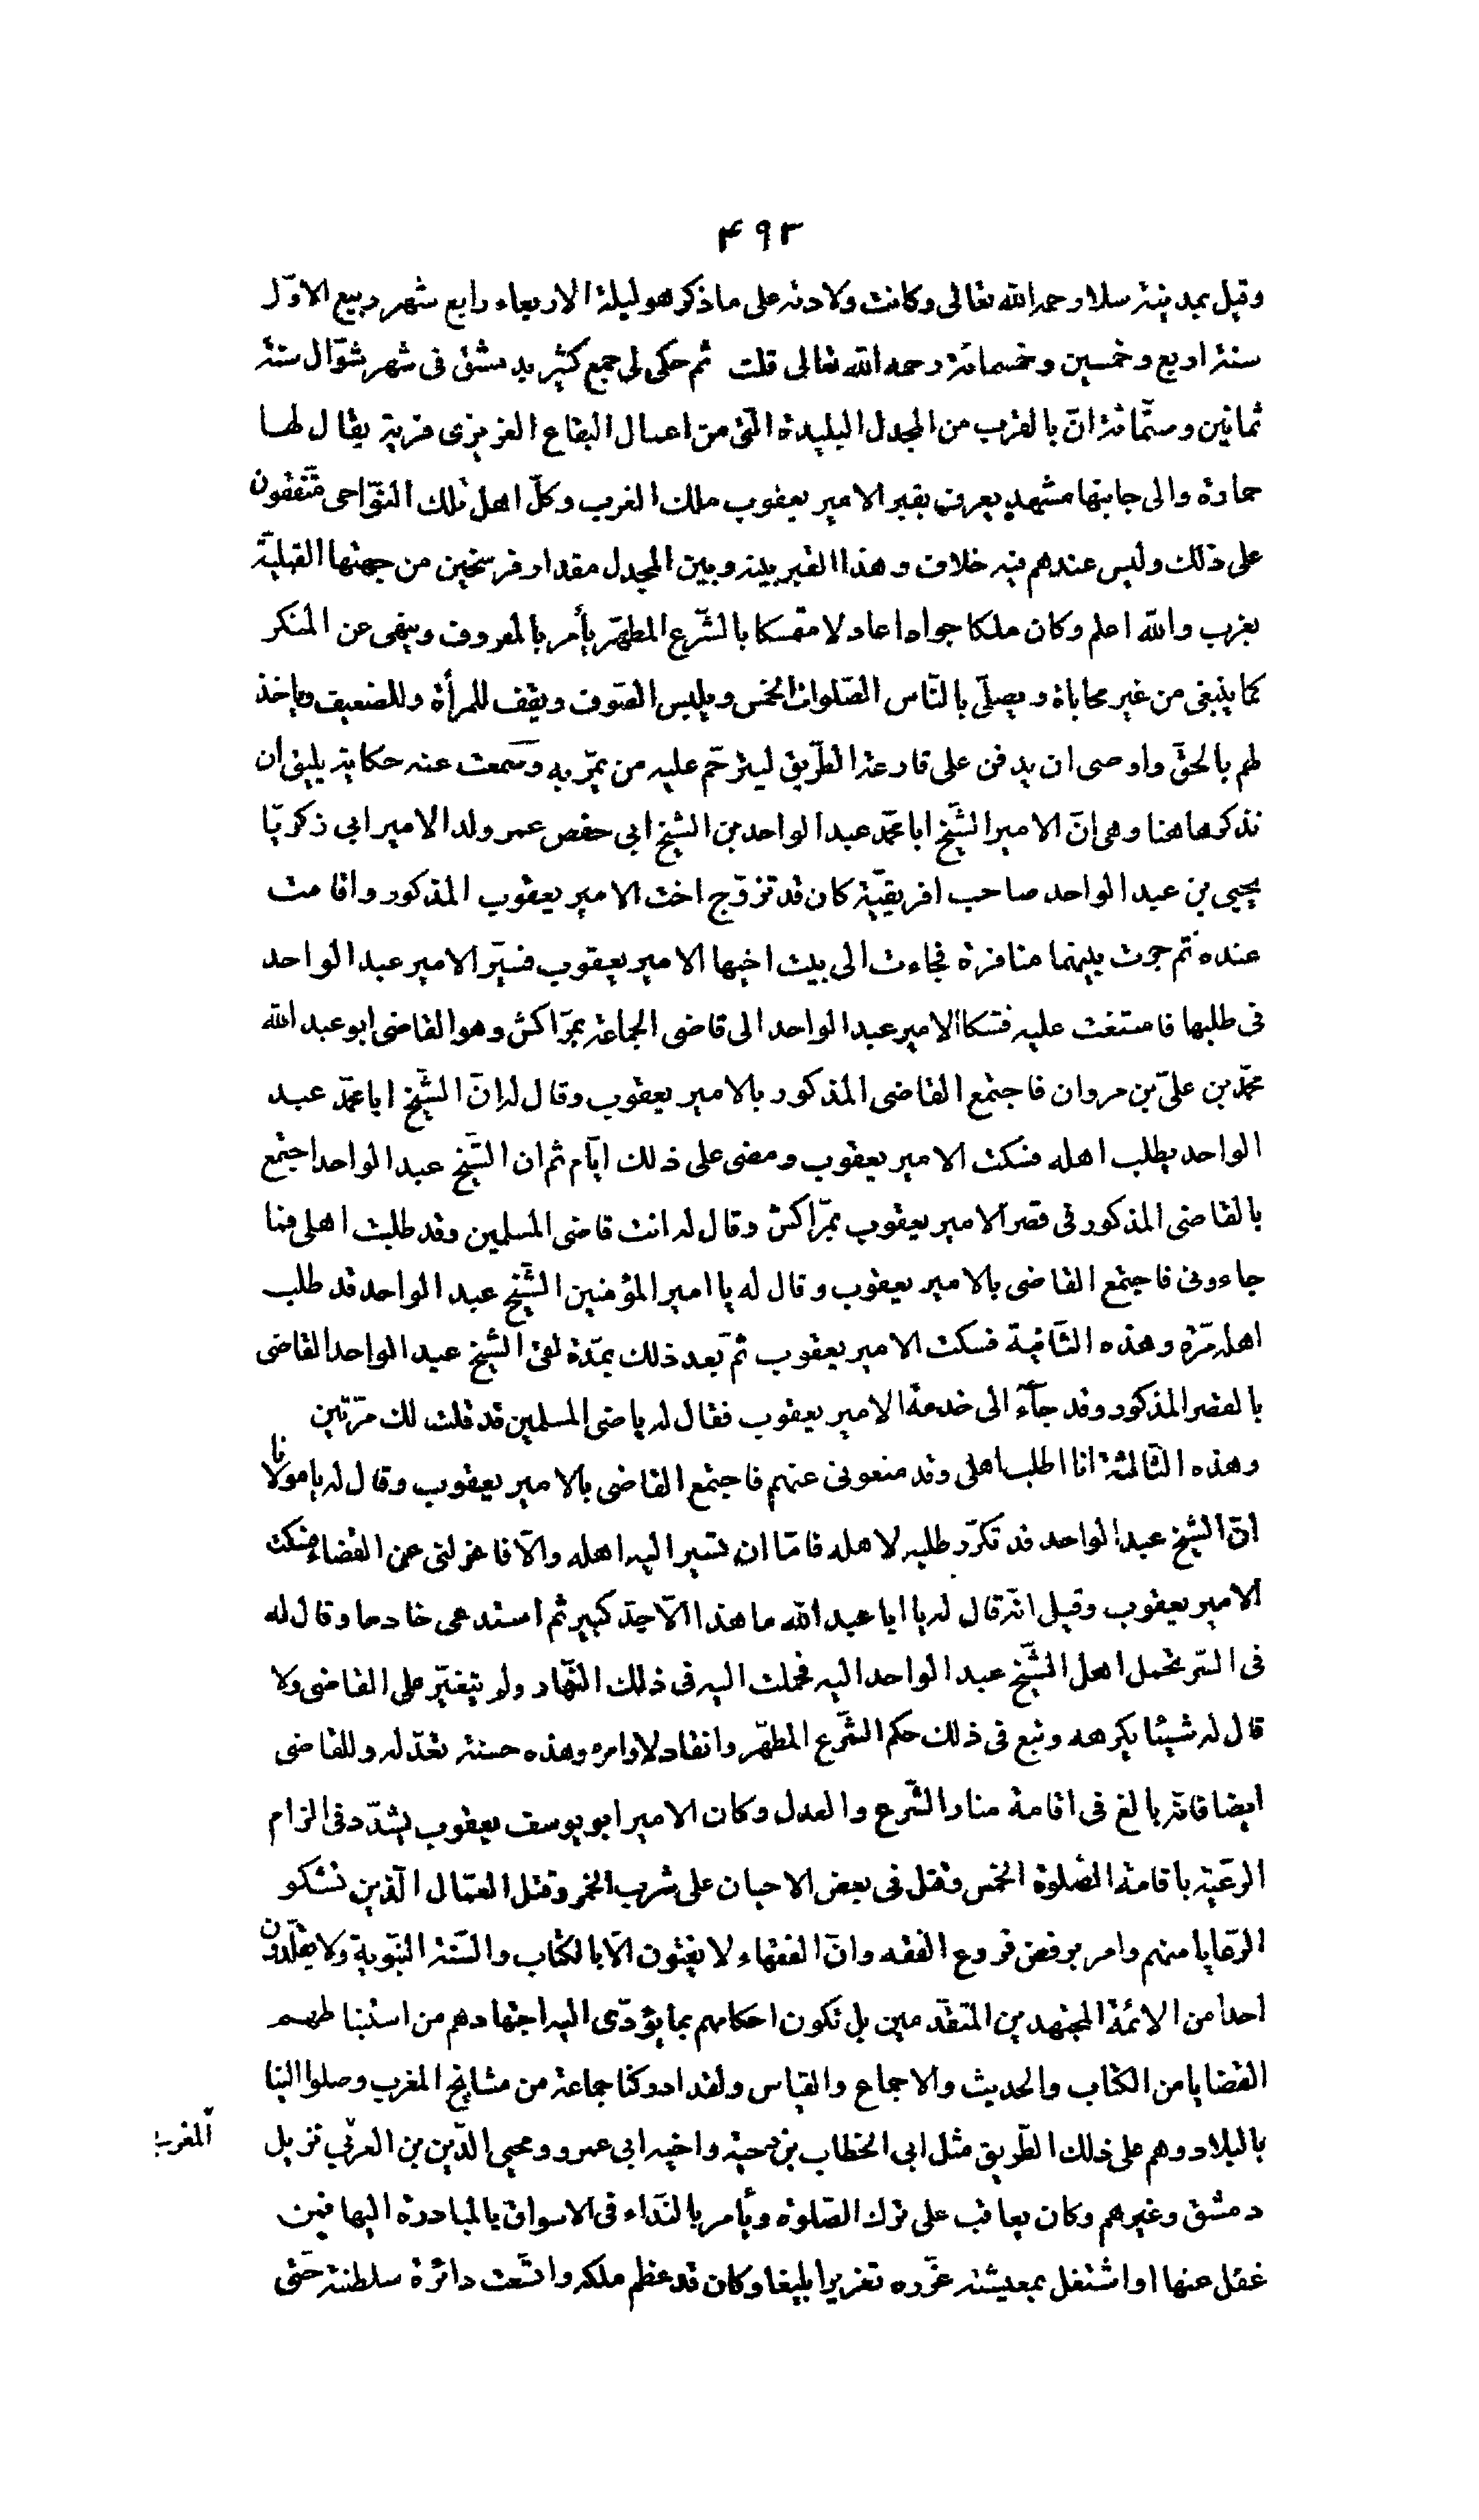 ۴۹۳
وقيل بمدينة سلا رحمه الله تعالى وكانت ولادته على ما ذكر هو ليلة الاربعاء رابع شهر ربيع الاوّل
سنة اربع وخمسين وخمسمائة رحمه الله تعالى قلت ثم حكى لى جمع كثير بدمشق فى شهر شوّال سنة
ثمانين وستّمائة انّ بالقرب من المجدل البليدة الّتى من اعمال البقاع العزيزى قرية يقال لها
حمارة والى جانبها مشهد يعرف بقبر الامير يعقوب ملك الغرب وكلّ اهل تلك النّواحى متّفقون
على ذلك وليس عندهم فيه خلاف وهذا القبر بينه وبين المجدل مقدار فرسخين من جهتها القبليّة
بغرب والله اعلم وكان ملكا جوادا عادلا متمسكا بالشّرع المطهّر يأمر بالمعروف وينهى عن المنكر
كما ينبغى من غير محاباة ويصلّى بالنّاس الصّلوات الخمس ويلبس الصّوف ويقف للمرأة وللضعيف وياخذ
لهم بالحقّ واوصى ان يدفن على قارعة الطّريق ليترحّم عليه من يمرّ به وسمعت عنه حكاية يليق ان
نذكرها هنا وهى انّ الامير الشّيخ ابا محمّد عبد الواحد بن الشيخ ابى حفص عمر ولد الامير ابى زكريّا
يحيى بن عبد الواحد صاحب افريقيّة كان قد تزوّج اخت الامير يعقوب المذكور واقامت
عنده ثم جرت بينهما منافرة فجاءت الى بيت اخيها الامير يعقوب فسيّر الامير عبد الواحد
فى طلبها فامتنعت عليه فشكا الامير عبد الواحد الى قاضى الجماعة بمرّاكش وهو القاضى ابو عبد الله
محمّد بن علىّ بن مروان فاجتمع القاضى المذكور بالامير يعقوب وقال له انّ الشّيخ ابا محمّد عبد
الواحد يطلب اهله فسكت الامير يعقوب ومضى على ذلك ايّام ثم ان الشّيخ عبد الواحد اجتمع
بالقاضى المذكور فى قصر الامير يعقوب بمرّاكش وقال له انت قاضى المسلمين وقد طلبت اهلى فما
جاءونى فاجتمع القاضى بالامير يعقوب وقال له يا امير المؤمنين الشّيخ عبد الواحد قد طلب
اهله مرّة وهذه الثّانية فسكت الامير يعقوب ثم بعد ذلك بمدّة لقى الشّيخ عبد الواحد القاضى
بالقصر المذكور وقد جآء الى خدمة الامير يعقوب فقال له ياضى المسلمين قد قلت لك مرّتين
وهذه الثّالثة انا اطلب اهلى وقد منعونى عنهم فاجتمع القاضى بالامير يعقوب وقال له يا مولانا
انّ الشيخ عبد الواحد قد تكرّر طلبه لاهله فامّا ان تسير اليه اهله والّا فاعزلنى عن القضاء فسكت
الامير يعقوب وقيل انّه قال له يا ابا عبد الله ما هذا الّا جدّ كبير ثم استدعى خادما وقال له
فى السّر تحمل اهل الشّيخ عبد الواحد اليه فحملت اليه فى ذلك النّهار ولم يتغيّر على القاضى ولا
قال له شيئا يكرهه وتبع فى ذلك حكم الشّرع المطهّر وانقاد لاوامره وهذه حسنة تعدّ له وللقاضى
ايضا فانّه بالغ فى اقامة منار الشّرع والعدل وكان الامير ابو يوسف يعقوب يشدّد فى الزام
الرّعيّة باقامة الصّلوة الخمس وقتل فى بعض الاحيان على شرب الخمر وقتل العمّال الّذين تشكو
الرّعايا منهم وامر برفض فروع الفقه وانّ الفقهاء لا يفتون الّا بالكتاب والسّنة النّبويّة ولا يقلّدون
احدا من الائمّة المجتهدين المتقدّمين بل تكون احكامهم بما يؤدّى اليه اجتهادهم من استنباطهم
القضايا من الكتاب والحديث والاجماع والقياس ولقد ادركنا جماعة من مشايخ المغرب وصلوا الينا
بالبلاد وهم على ذلك الطّريق مثل ابى الخطاب بن دحية واخيه ابى عمرو ومحيى الدّين بن العربّى نزيل
المغرب
دمشق وغيرهم وكان يعاقب على ترك الصّلوة ويأمر بالنّداء فى الاسواق بالمبادرة اليها فمن
غفل عنها او اشتغل بمعيشته عزّره تعزيرا بليغا وكان قد عظم ملكه واتّسعت دائرة سلطنته حتّى